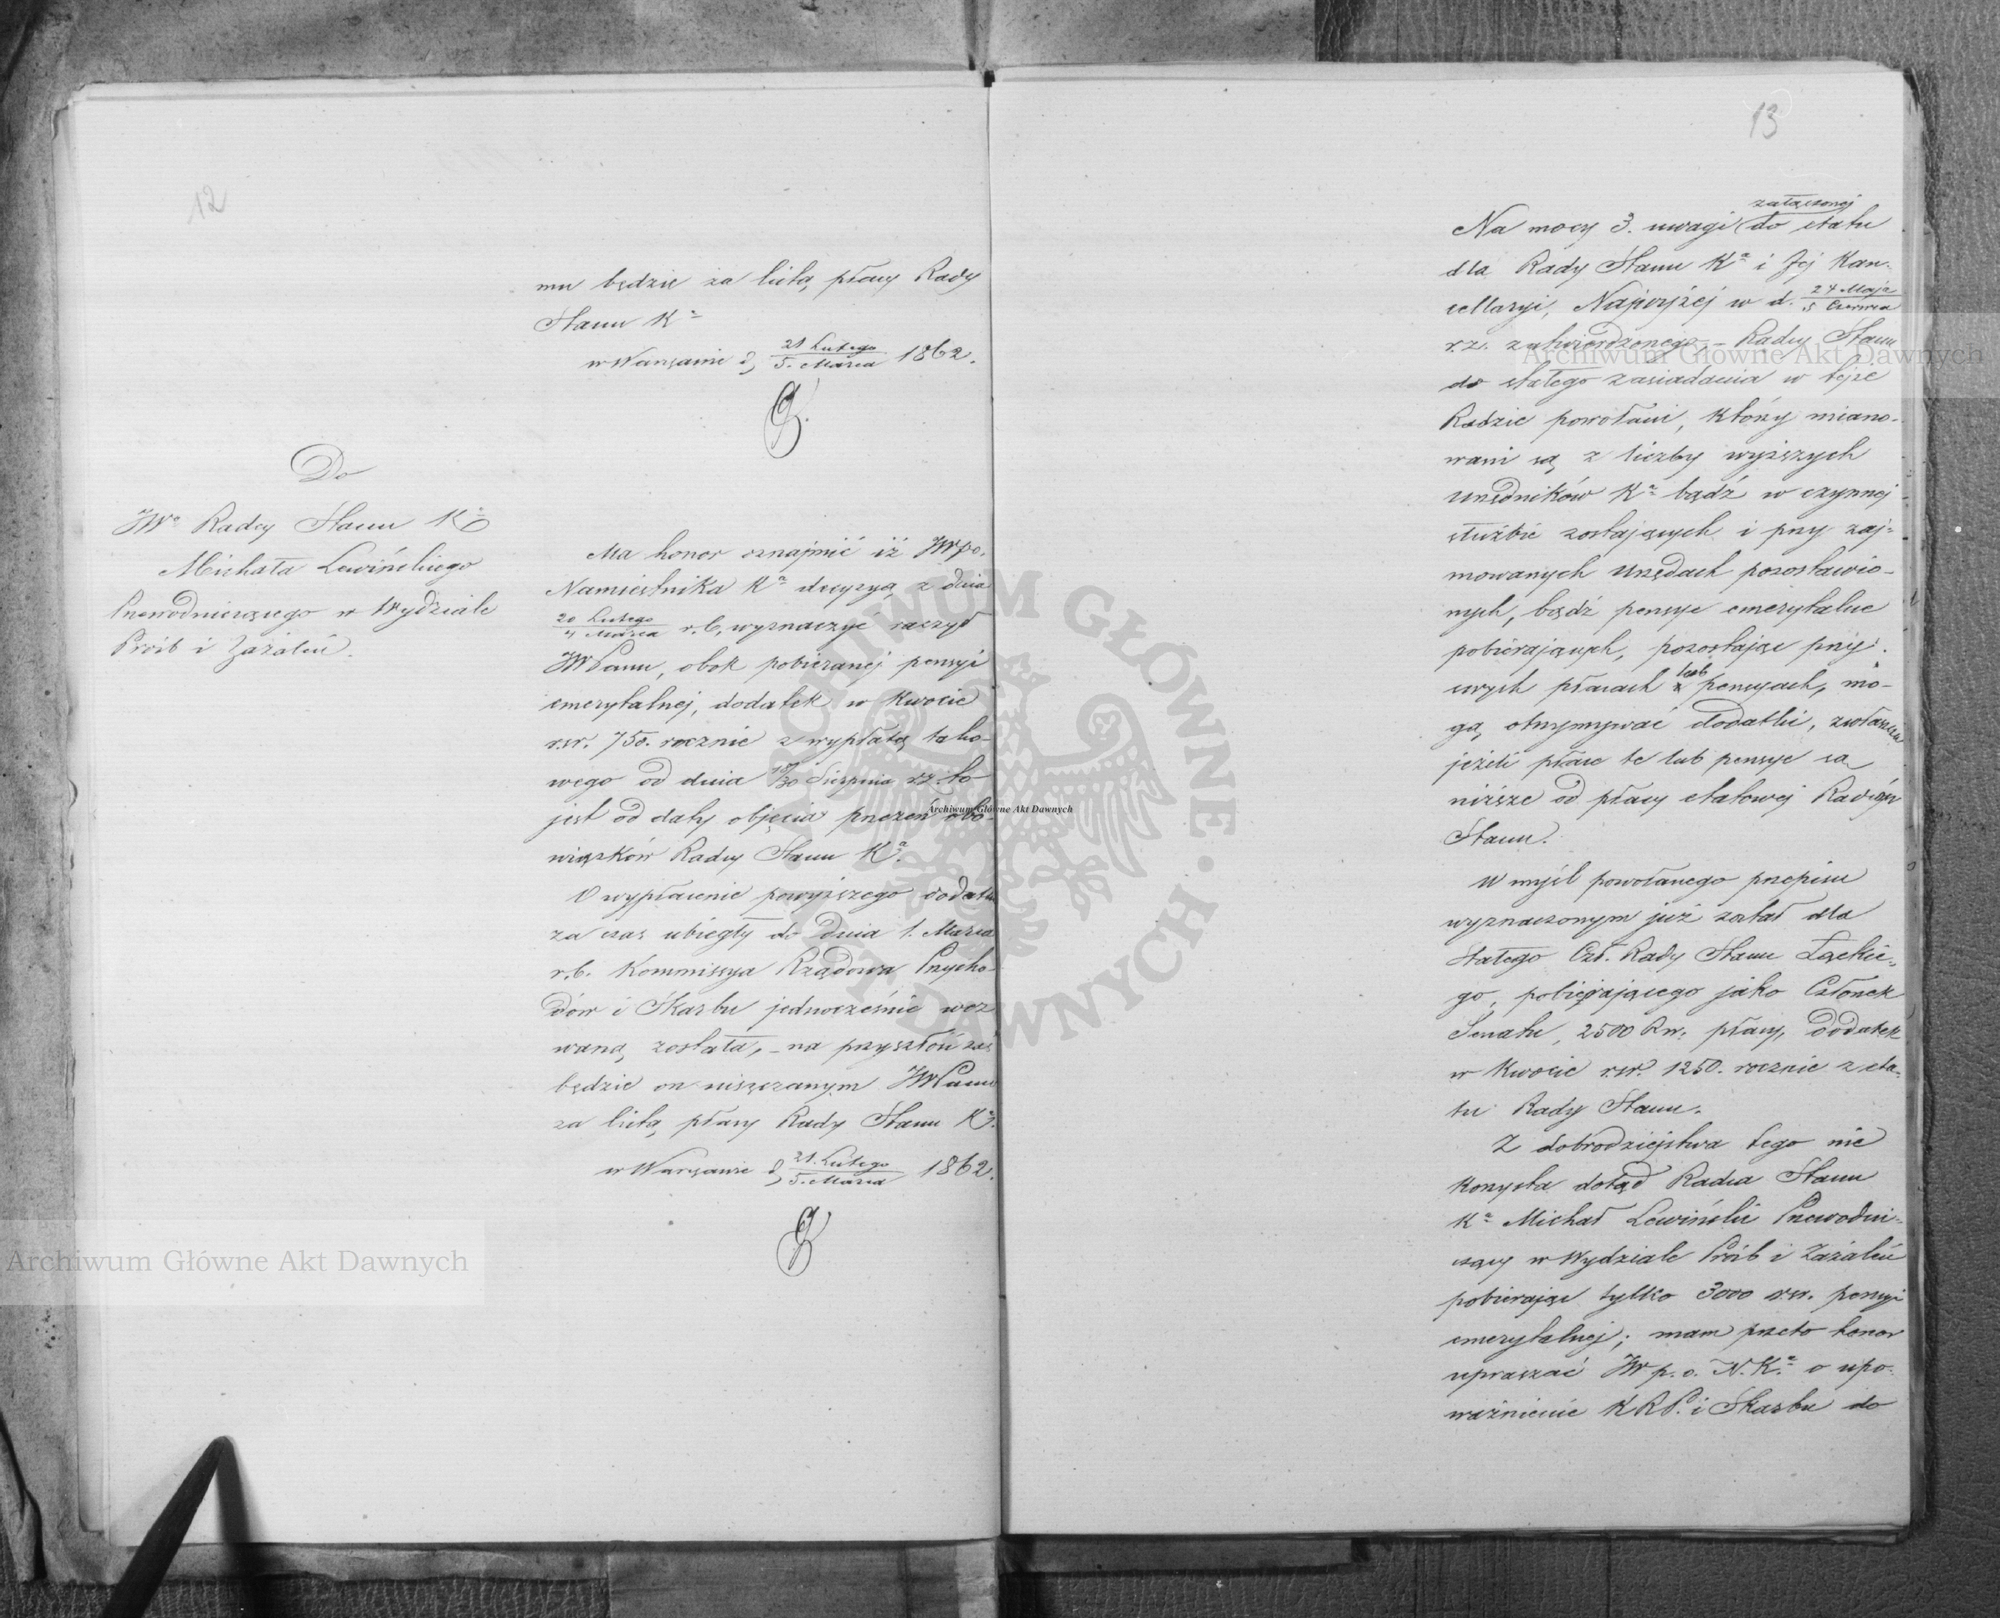 12
mu będzie za listą płacy Rady
Stanu Kª
w Warszawie d. 21 Lutego / 5. Marca 1862.
Do
JWº Radcy Stanu Kª
Michała Lewińskiego
Prezwodniczącego w Wydziale
Próśb i Zażaleń.
Ma honor oznajmić iż JW po.
Namiestnika Kª decyzyą z dnia
20 Lutego / 4 Marca r.b, wyznaczyć raczył
JWPanu, obok pobieranej pensyi
emerytalnej, dodatek w kwocie
rsr. 750. rocznie z wypłatą tako-
wego od dnia 18/30 Sierpnia rz. to
jest od daty objęcia przezeń obo-
wiązków Radcy Stanu Kª.
O wypłacenie powyższego dodatku
za czas ubiegły do dnia 1. Marca
r.b. Kommissya Rządowa Przycho-
dów i Skarbu jednocześnie wez
waną została, – na przyszłość zaś
będzie on uiszczanym JWPanu
za listą płacy Rady Stanu Kª.
w Warszawie d. 21. Lutego / 5. Marca 1862.
13
załączonej
Na mocy 3. uwagi do etatu
dla Rady Stanu Kª i Jej Kan-
cellaryi, Najwyżej w d. 24 Maja / 5 Czerwca
r.z. zatwierdzonego, – Radcy Stanu
do stałego zasiadania w tejże
Radzie powołani, którzy miano-
wani są z liczby wyższych
urzędników Kª bądź w czynnej
służbie zostających i przy zaj-
mowanych urzędach pozostawio-
nych, bądź pensye emerytalne
pobierających, pozostając przy
swych płacach lub pensyach, mo-
gą otrzymywać dodatki, zwłaszcza
jeżeli płace te lub pensye są
niższe od płacy etatowej Radców
Stanu.
W myśl powołanego przepisu
wyznaczonym już został dla
Stałego Czł. Rady Stanu Łąckie-
go, pobierającego jako Członek
Senatu, 2500 Rsr. płacy, dodatek
w kwocie rsr. 1250. rocznie z eta-
tu Rady Stanu.
Z dobrodziejstwa tego nie
korzysta dotąd Radca Stanu
Kª Michał Lewiński Prezwodni-
czący w Wydziale Próśb i Zażaleń
pobierając tylko 3000 rsr. pensyi
emerytalnej; mam przeto honor
upraszać JW p.o. N.Kª o upo-
ważnienie KRP. i Skarbu do
Archiwum Główne Akt Dawnych
Archiwum Główne Akt Dawnych
Archiwum Główne Akt Dawnych
ARCHIWUM GŁÓWNE AKT DAWNYCH